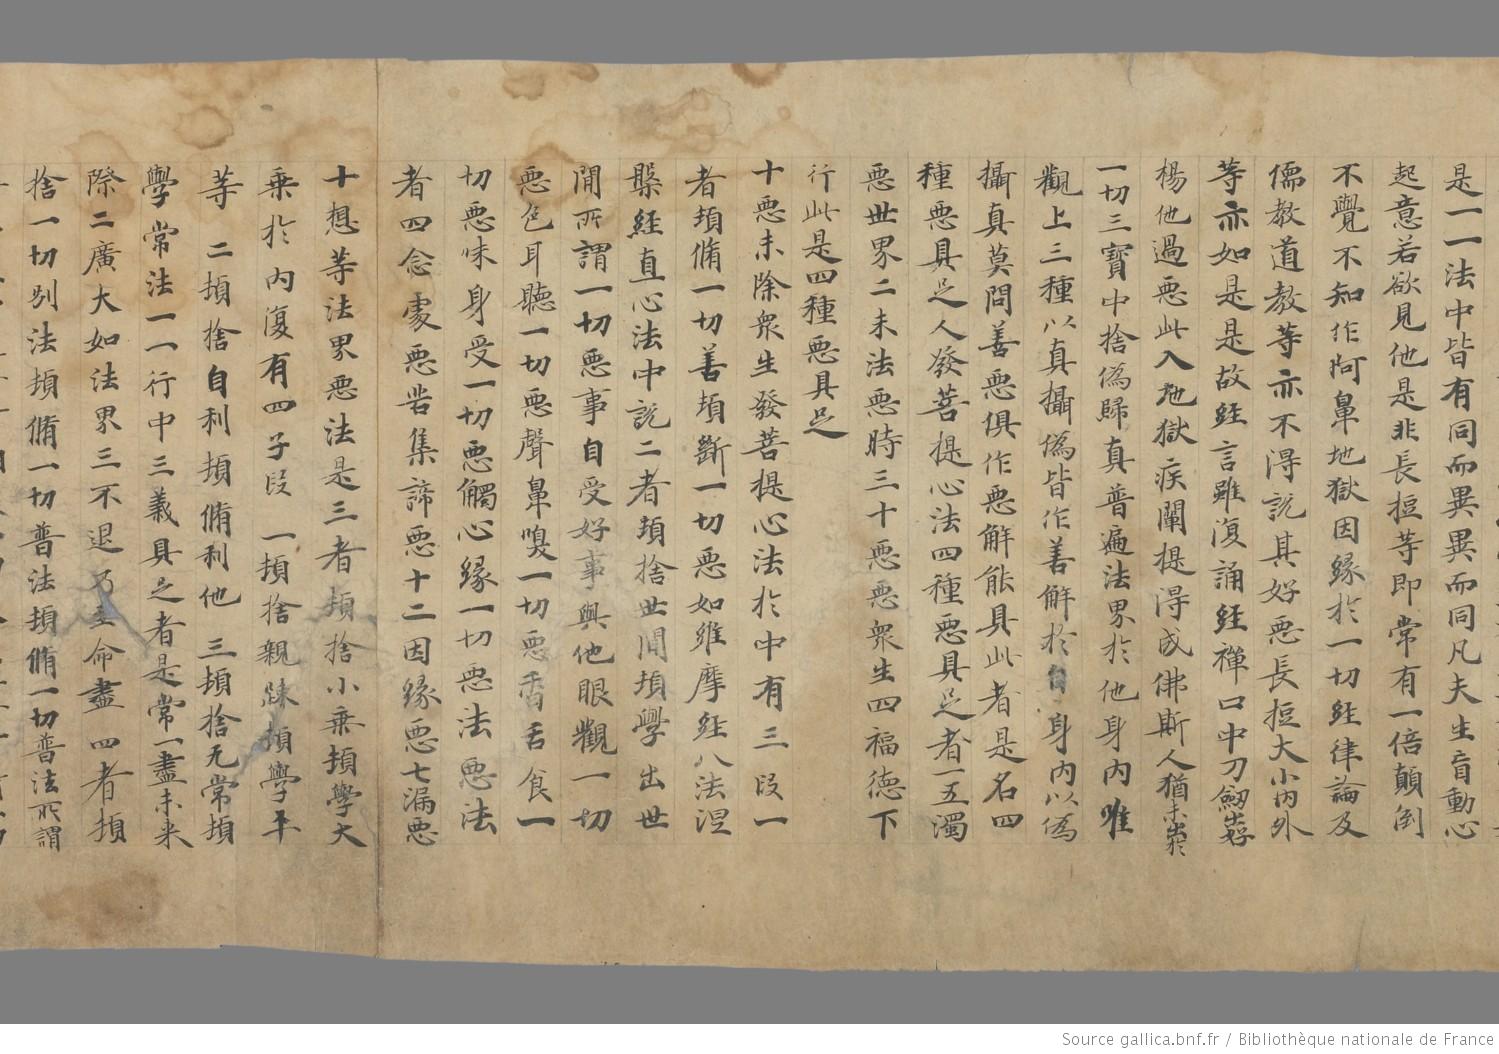 是一一法中皆有同而異異而同凡夫生盲動心
起意若欲見他是非長短等即常有一倍顛倒
不覺不知作阿鼻地獄因緣於一切経律論及
儒教道教等亦不得説其好惡長短大小内外
等亦如是是故経言雖復誦経禪口中刀劔
楊他過惡此入地獄疾闡提得成佛斯人猶未出於
一切三寳中捨偽歸真普遍法界於他身内唯
觀上三種以真攝偽皆作善解於自身内以偽
攝真莫問善惡俱作惡解能具此者是名四
種惡具足人發菩提心法四種惡具足者一五濁
惡世界二末法惡時三十惡惡衆生四福德下
行此是四種惡具足
十惡未除衆生發菩提心法於中有三段一
者須脩一切善須斷一切惡如維摩経八法涅
槃経直心法中説二者須捨世間須學出世
間所謂一切惡事自受好事與他眼觀一切
惡色耳聽一切惡聲鼻嗅一切惡香舌食一
切惡味身受一切惡觸心緣一切惡法惡法
者四念處惡苦集諦惡十二因緣惡七漏惡
十想等法界惡法是三者須捨小乗須學大
乗於内復有四子段 一須捨親踈須學平
等 二須捨自利須脩利他 三須捨无常須
學常法一一行中三義具足者是常一盡未来
際二廣大如法界三不退乃至命盡 四者須
捨一切別法須脩一切普法須脩一切普法所謂